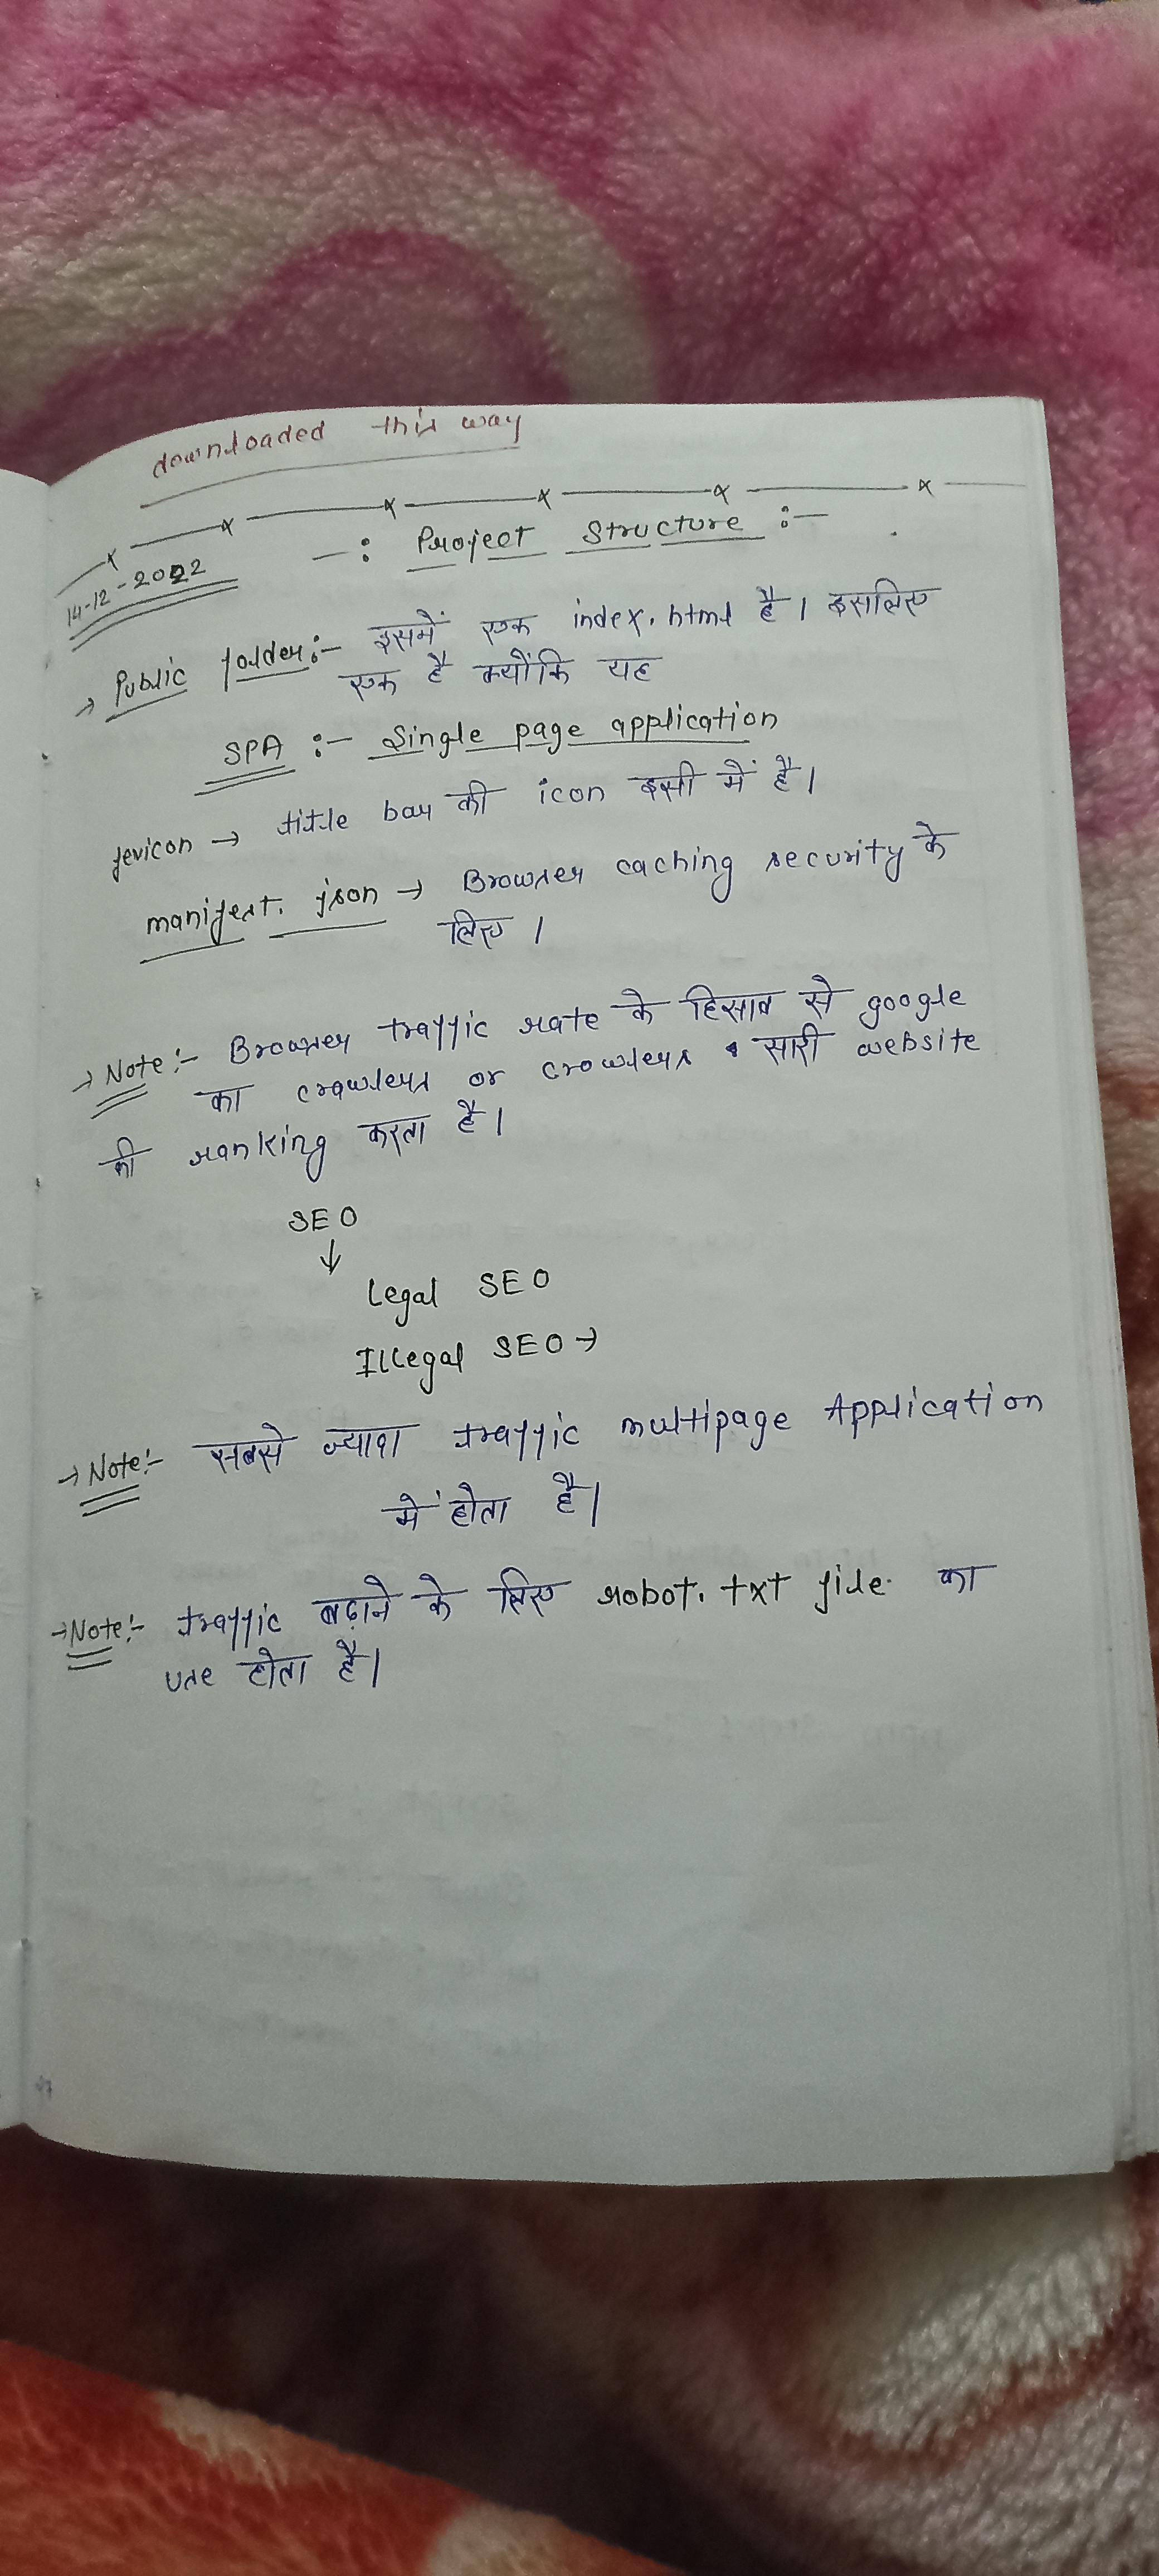 downloaded this way
14-12-2022
-: Project Structure :-
→ Public folder:- इसमें एक index.html है। इसलिए
एक है क्योंकि यह
SPA :- Single page application
fevicon → title bar की icon इसी में है।
manifest.json → Browser caching security के
लिए।
→ Note:- Browser traffic rate के हिसाब से google
का crawlers or crowlers सारी website
की ranking करता है।
SEO
↓
Legal SEO
Illegal SEO →
→ Note:- सबसे ज्यादा traffic multipage Application
में होता है।
→ Note:- traffic बढ़ाने के लिए robot.txt file का
use होता है।